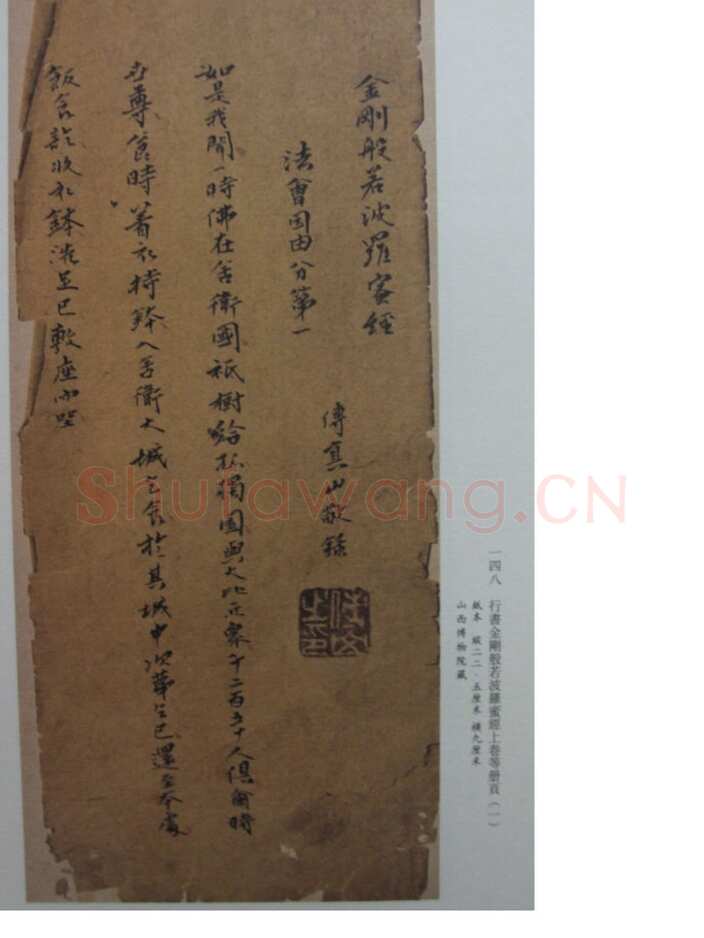 一四八 行書金剛般若波羅蜜經上卷等册頁（一）
紙本 縱二二·五厘米 橫九厘米
山西博物院藏
金剛般若波羅蜜經
傅真山敬錄
法會因由分第一
如是我聞一時佛在舍衛國祇樹給孤獨園與大比丘衆千二百五十人俱爾時
世尊食時著衣持鉢入舍衛大城乞食於其城中次第乞已還至本處
飯食訖收衣鉢洗足已敷座而坐
Shufawang.CN